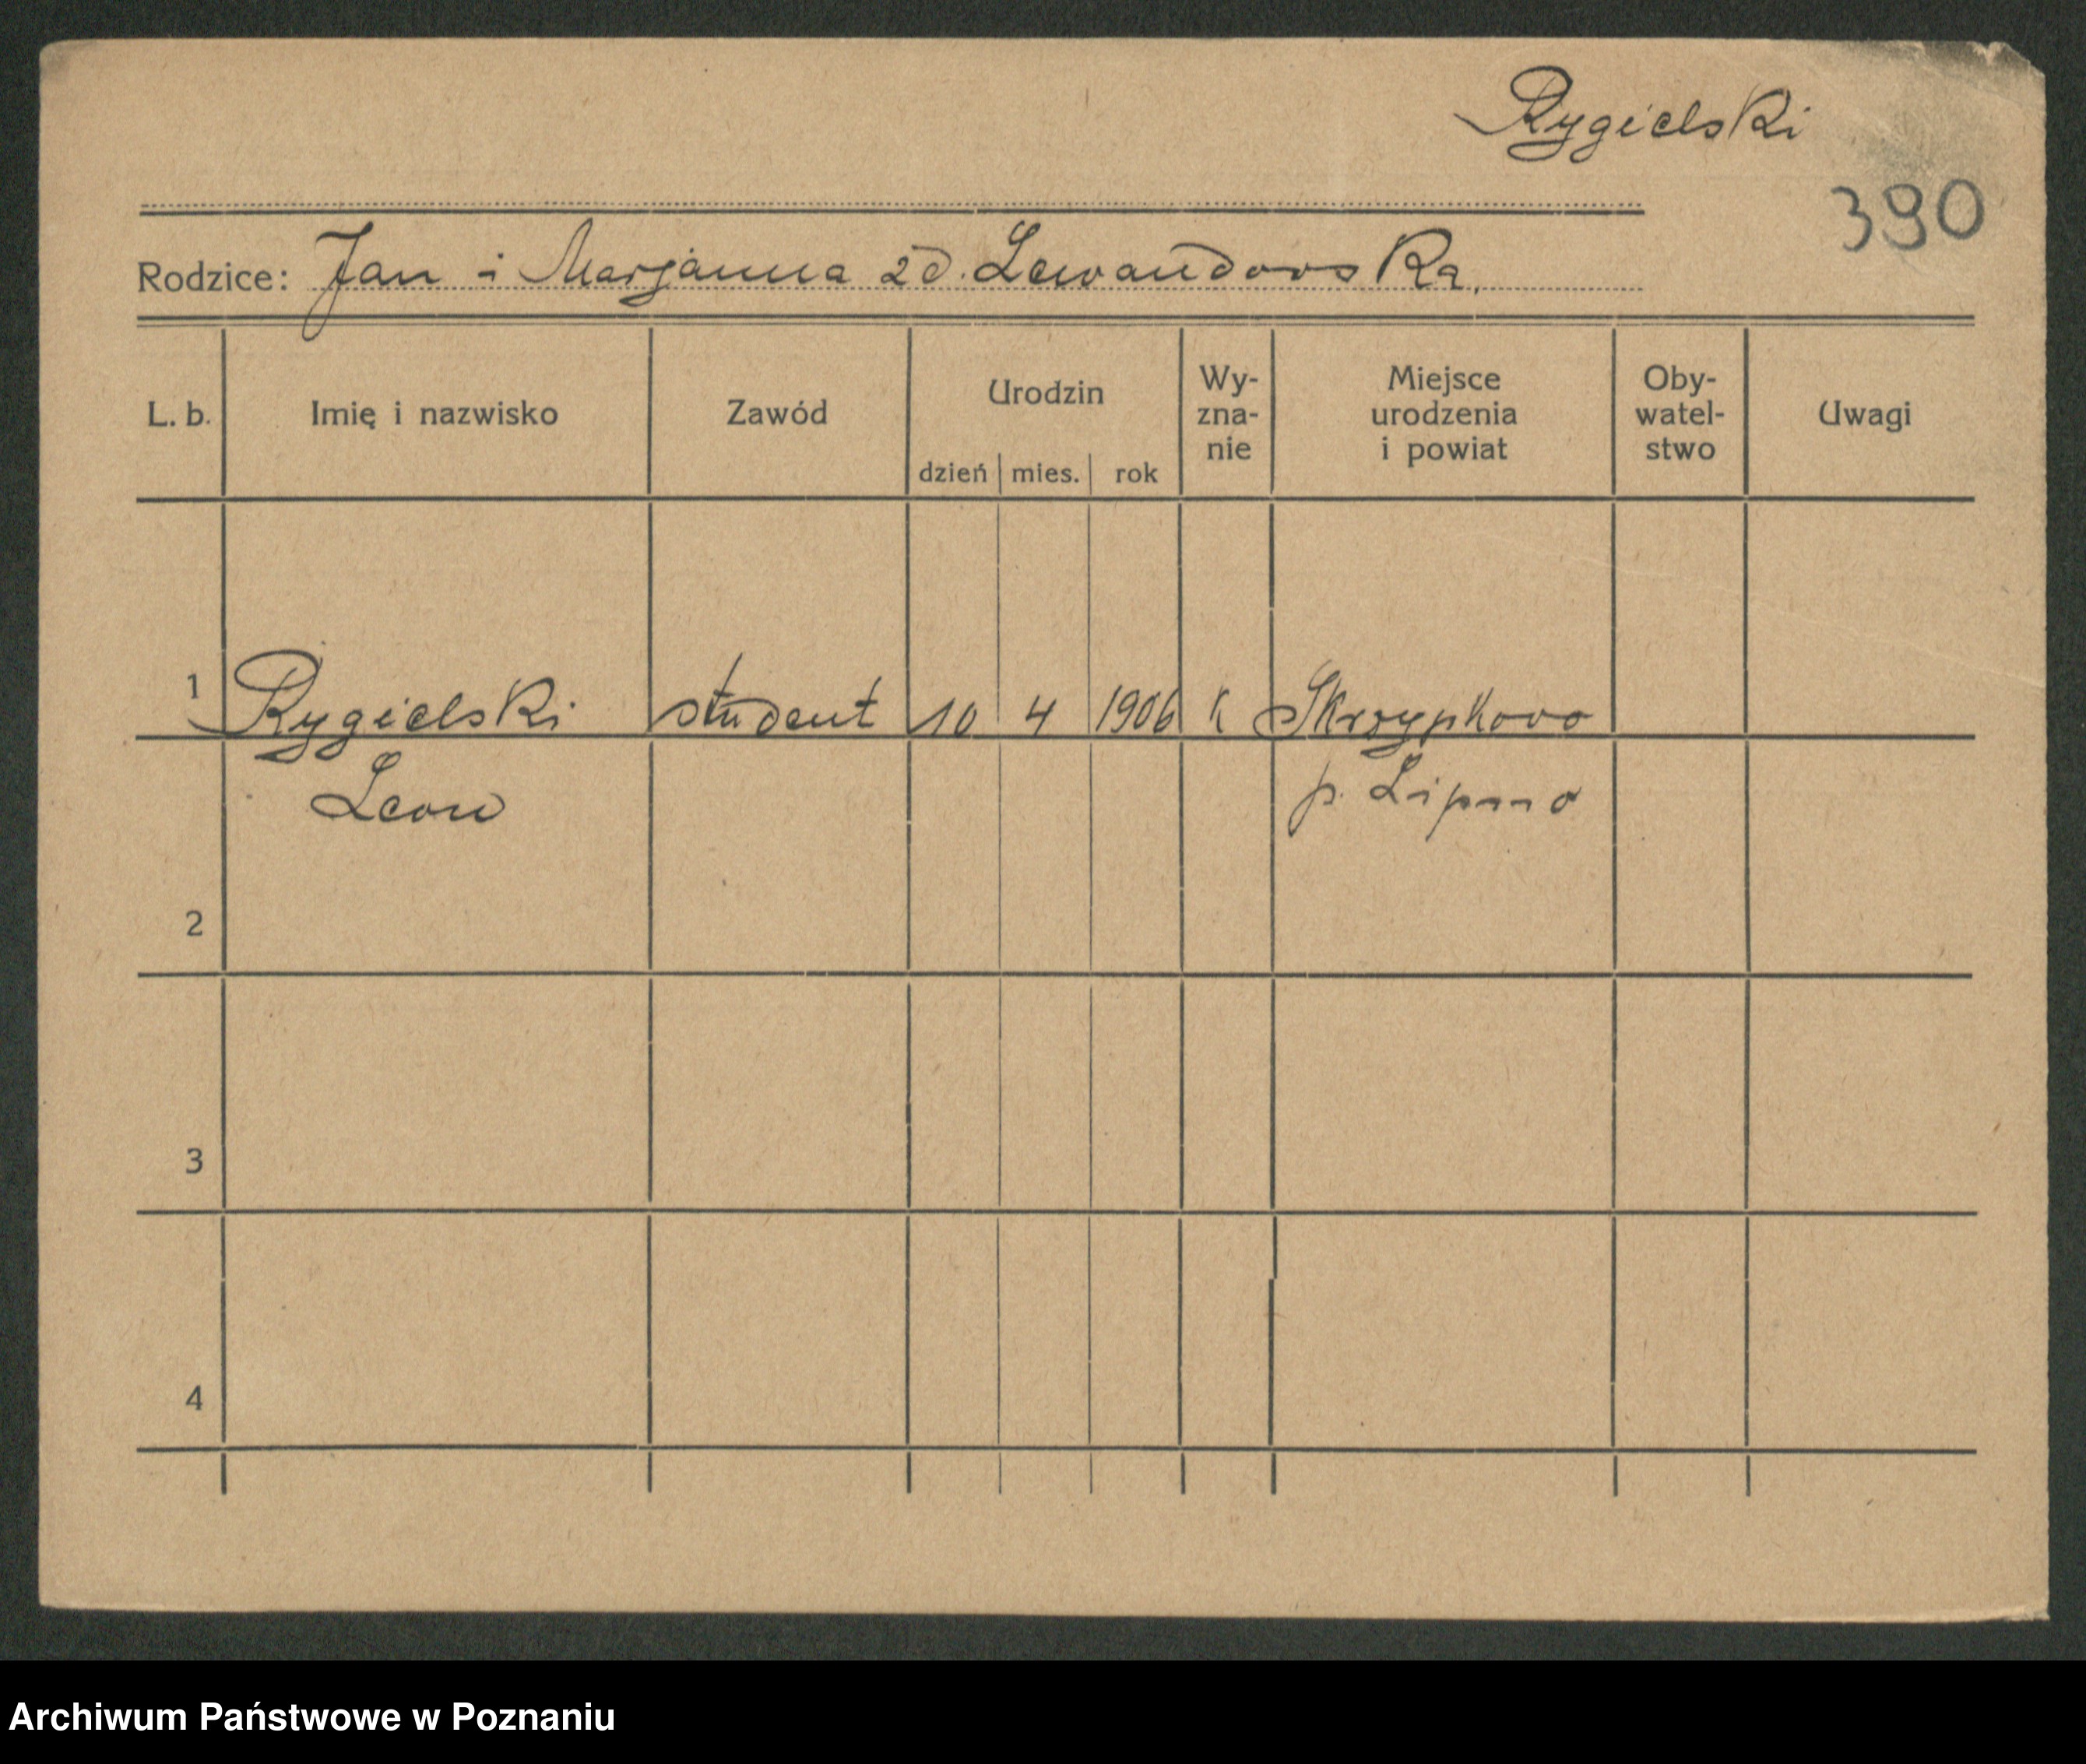 Rygielski
390
Rodzice: Jan i Marjanna zd. Lewandowska
L. b. Imię i nazwisko Zawód Urodzin dzień mies. rok Wy-zna-nie Miejsce urodzenia i powiat Oby-watel-stwo Uwagi
1 Rygielski student 10 4 1906 k Skrzypkowo
Leon p. Lipno
2
3
4
Archiwum Państwowe w Poznaniu